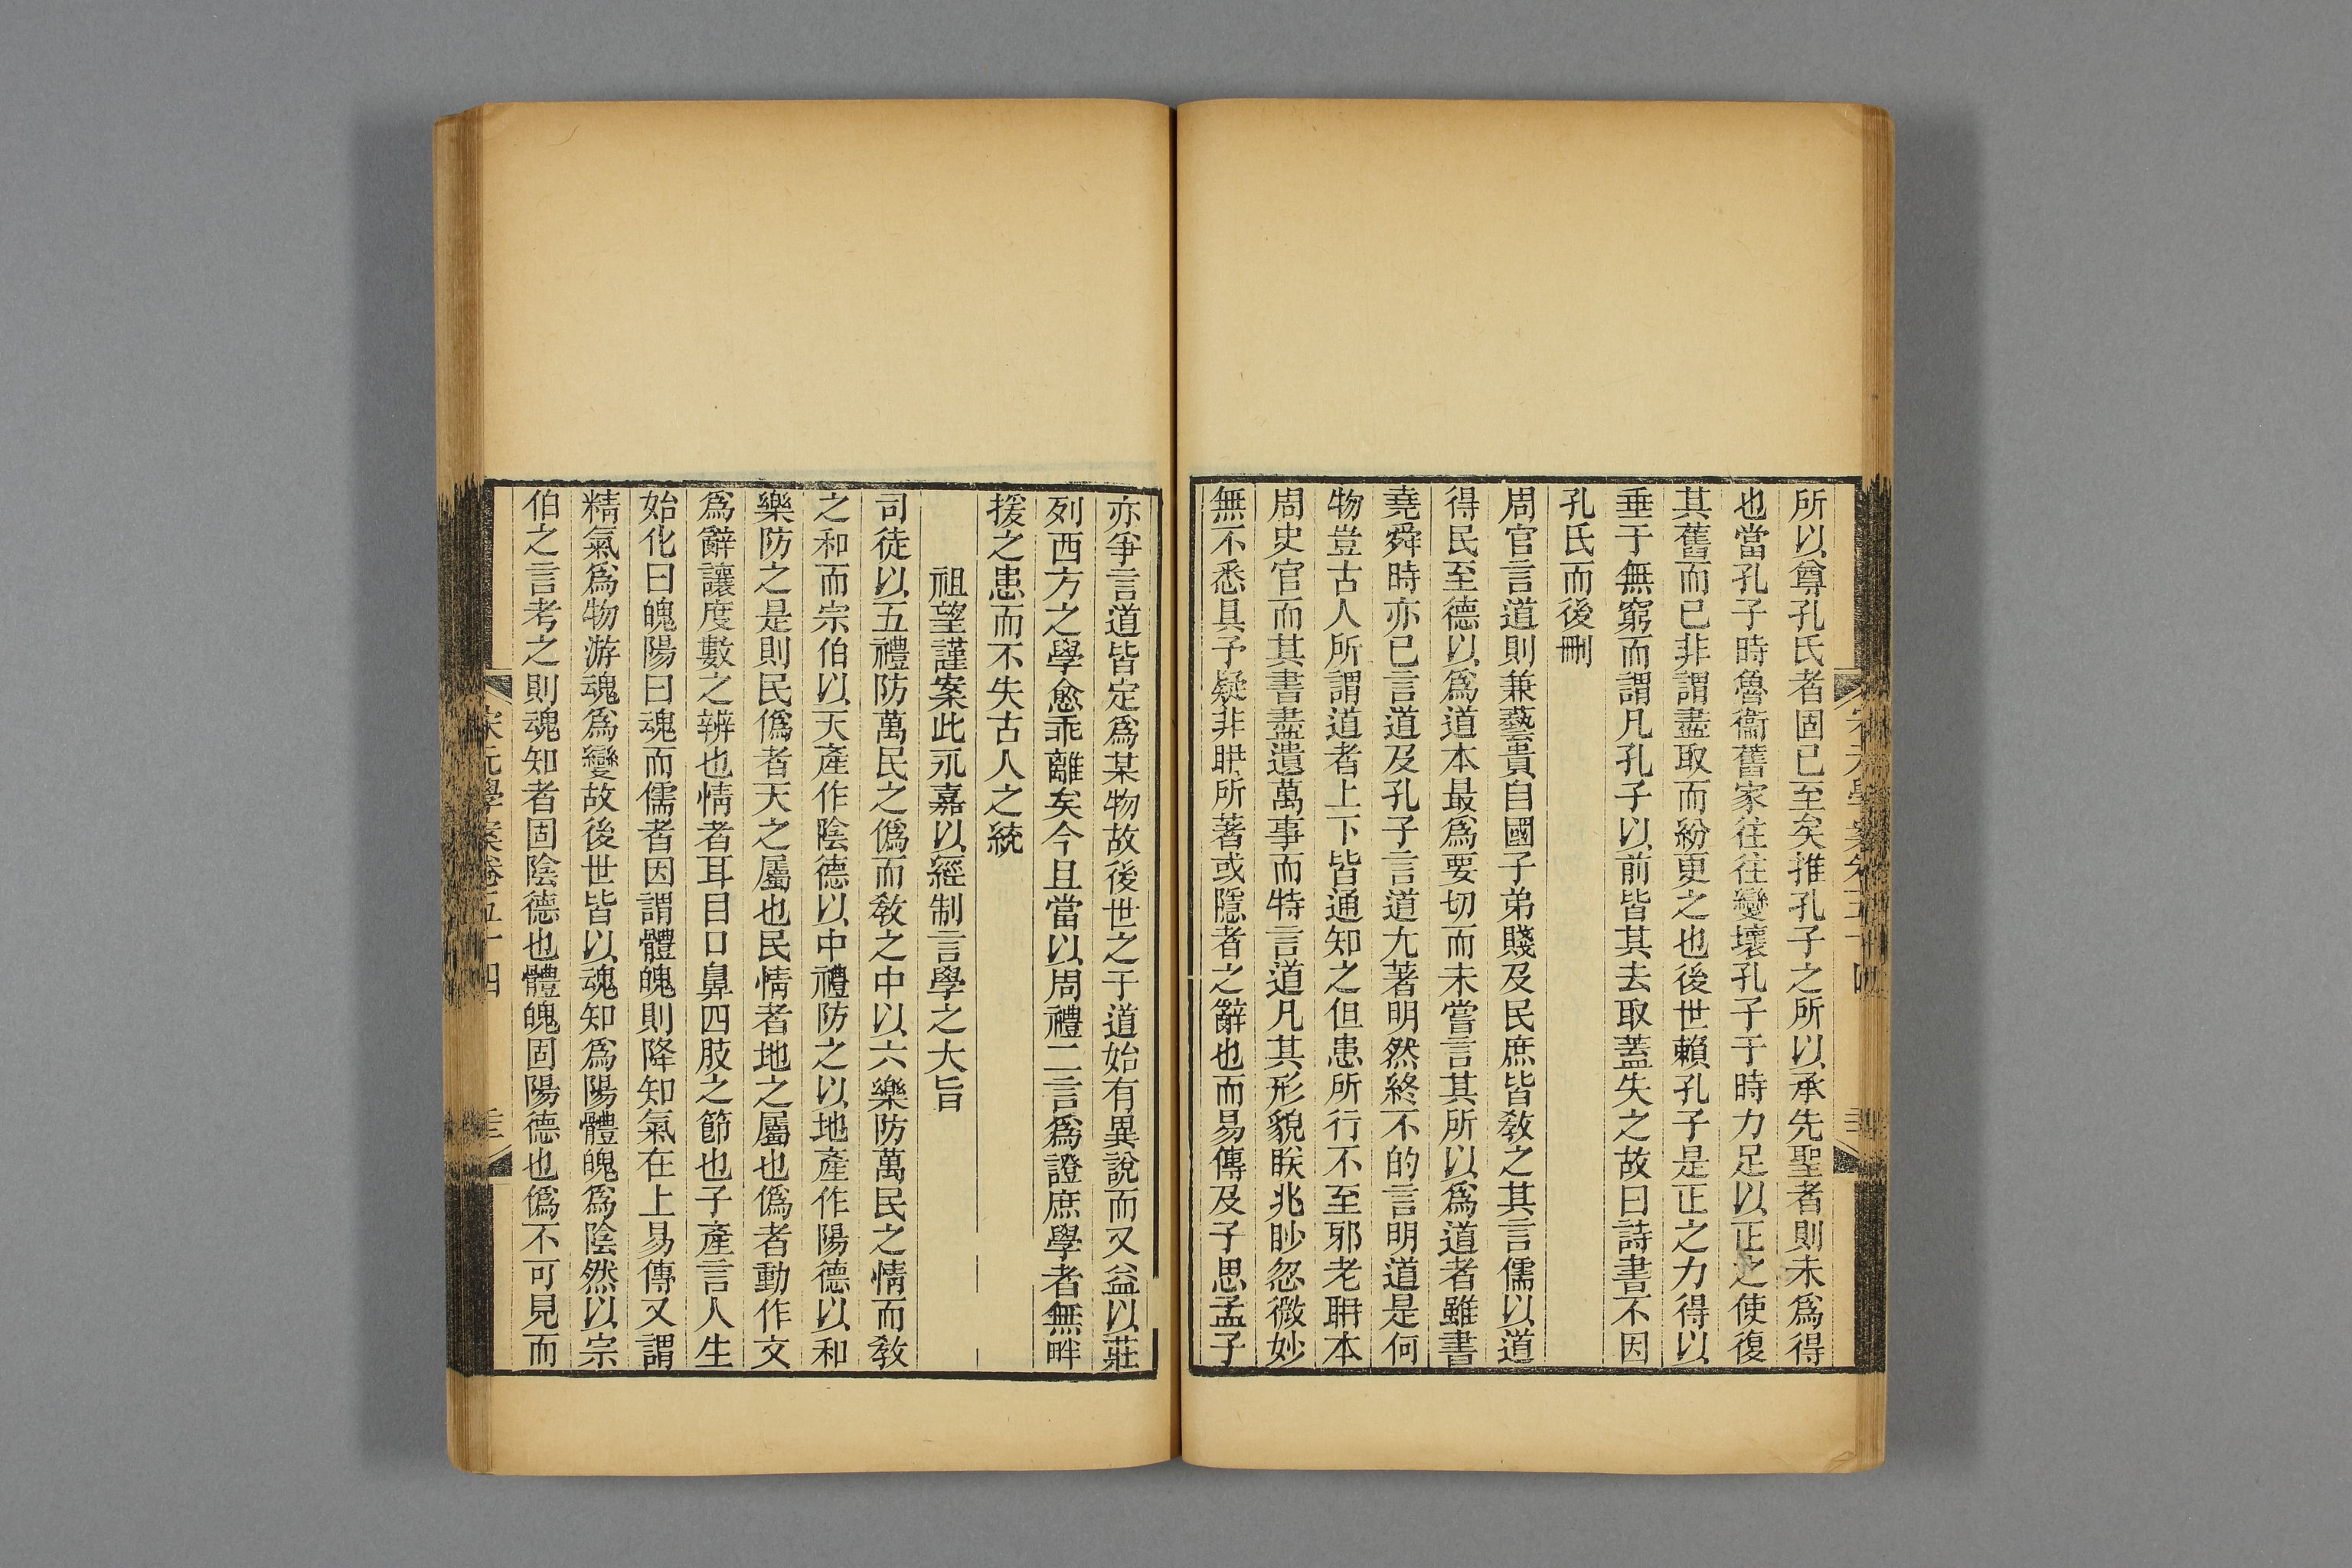 所以尊孔氏者固已至矣推孔子之所以承先聖者則未爲得
也當孔子時魯衞舊家往往變壞孔子于時力足以正之使復
其舊而已非謂盡取而紛更之也後世賴孔子是正之力得以
垂于無窮而謂凡孔子以前皆其去取蓋失之故曰詩書不因
孔氏而後刪
周官言道則兼藝貴自國子弟賤及民庶皆敎之其言儒以道
得民至德以爲道本最爲要切而未嘗言其所以爲道者雖書
堯舜時亦已言道及孔子言道尤著明然終不的言明道是何
物豈古人所謂道者上下皆通知之但患所行不至邪老聃本
周史官而其書盡遺萬事而特言道凡其形貌眹兆眇忽微妙
無不悉具予疑非聃所著或隱者之辭也而易傳及子思孟子
亦爭言道皆定爲某物故後世之于道始有異說而又益以莊
列西方之學愈乖離矣今且當以周禮二言爲證庶學者無畔
援之患而不失古人之統
祖望謹案此永嘉以經制言學之大旨
司徒以五禮防萬民之僞而敎之中以六樂防萬民之情而敎
之和而宗伯以天產作陰德以中禮防之以地產作陽德以和
樂防之是則民僞者天之屬也民情者地之屬也僞者動作文
爲辭讓度數之辨也情者耳目口鼻四肢之節也子產言人生
始化曰魄陽曰魂而儒者因謂體魄則降知氣在上易傳又謂
精氣爲物游魂爲變故後世皆以魂知爲陽體魄爲陰然以宗
伯之言考之則魂知者固陰德也體魄固陽德也僞不可見而
宋元學案卷五十四